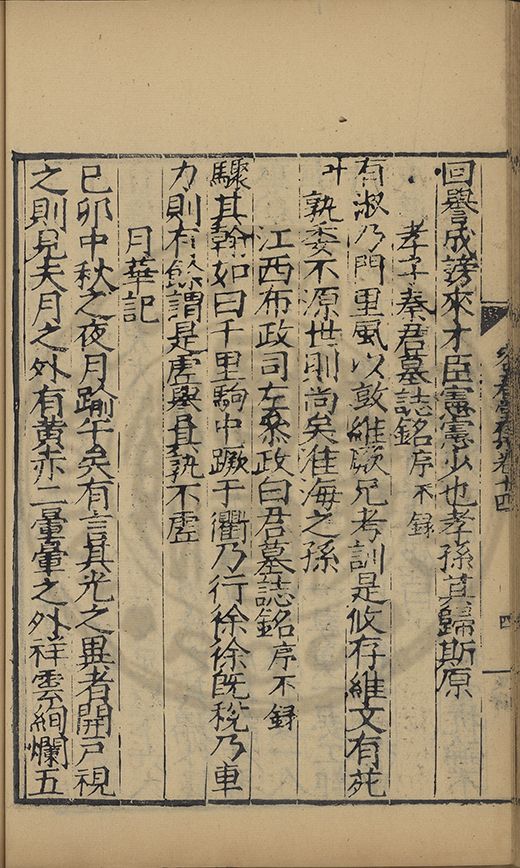 回譽成謗來才臣憲憲少也孝孫其歸斯原
孝子秦君墓誌銘序不錄
有淑乃門里風以敦維厥兄考訓是攸存維文有苑
叶孰委不源世則尚矣淮海之孫
江西布政司左叅政白君墓誌銘序不錄
驟其翰如曰千里駒中蹶于衢乃行徐徐旣稅乃車
力則有餘謂是虛與且孰不虛
月華記
己卯中秋之夜月踰午矣有言其光之異者開戶視
之則見夫月之外有黃赤二暈暈之外祥雲絢爛五
卷十四
四